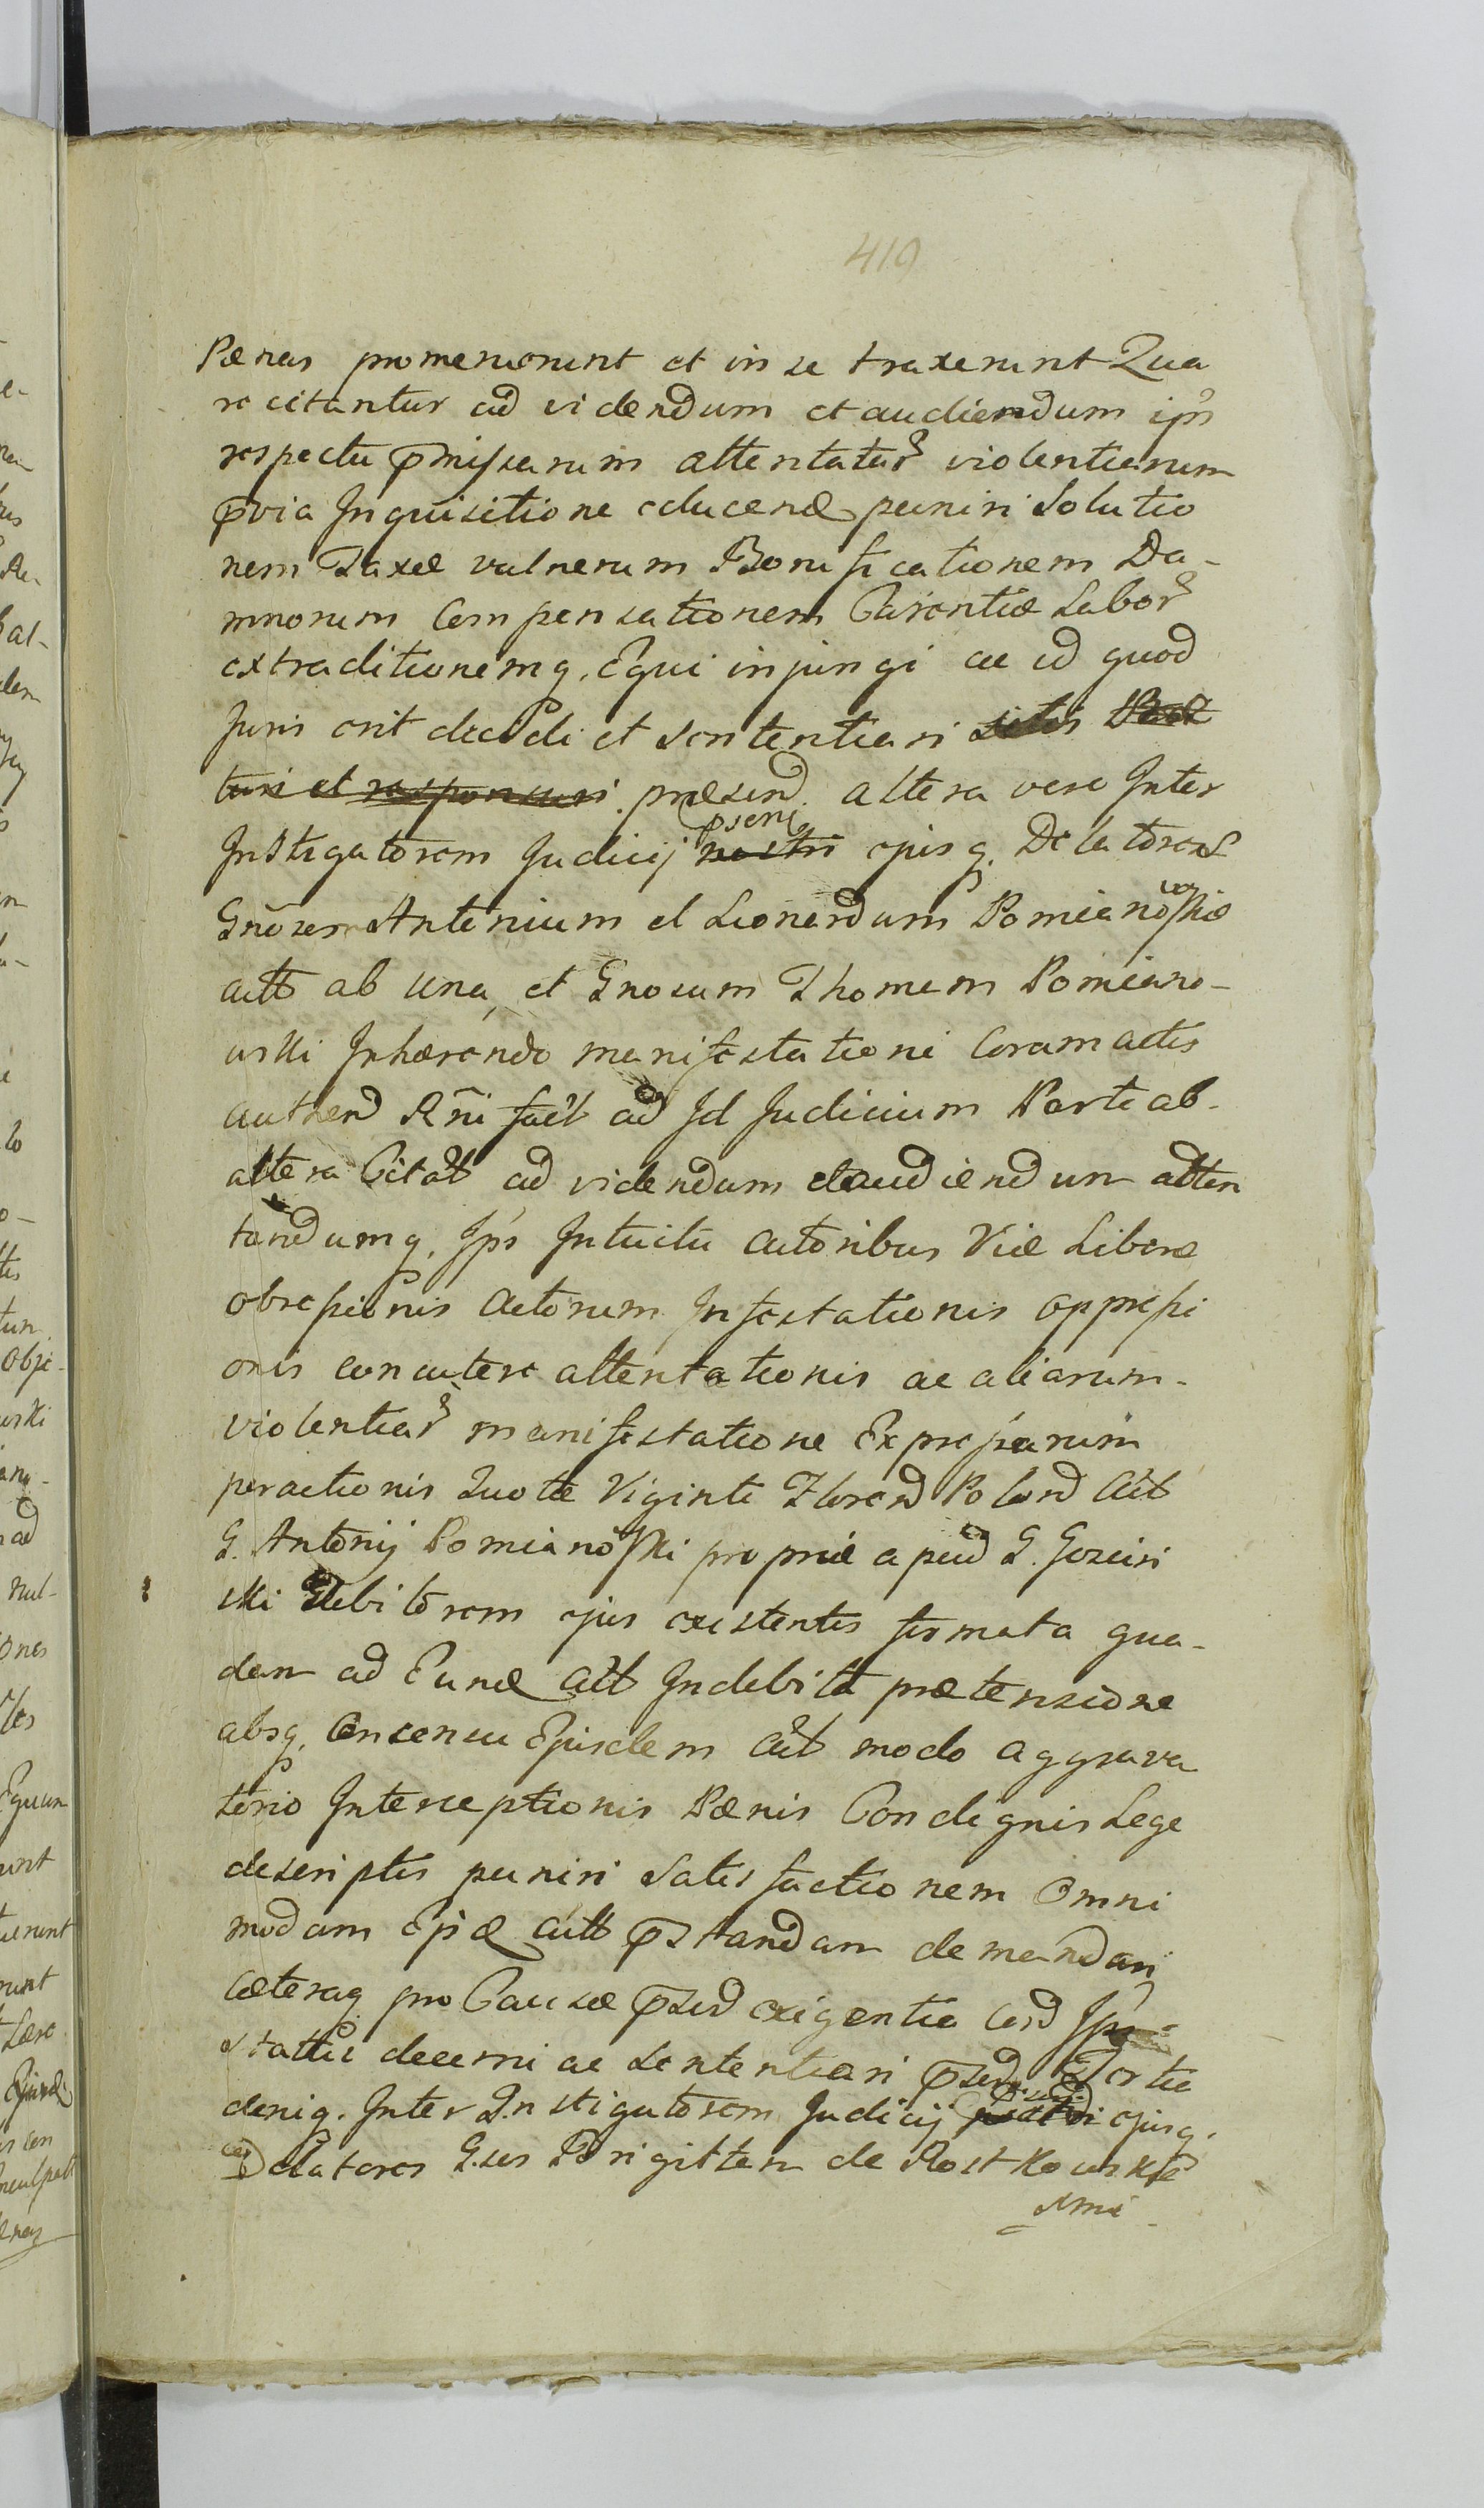 419
Pænas promeruerunt et in se traxerunt Qua
re citantur ad videndum et audiendum ips
respectu p̄missarum attentatar violentiarum
p̄via Inquisitione educend puniri Solutio
nem Taxæ vulnerum Bonificationem Da-
mnorum Compensationem Carentiæ Labor
extraditionemq. Equi injungi ac id quod
Juris erit decidi et sententiari
turi et responsuri. præsend. altera vero Inter
Instigatorem Judicij nostri p̄sent ejusq. Delatores
Gnosos Antonium et Leonardum Pomianowskie
actt ab una, et Gnosum Thomam Pomiano-
wski Inhærendo manifestationi Coram actis
authen Rñi fact ad Id Judicium Parte ab
altera Citat ad videndum et audiendum atten
tandumq. Ips Intuitu actoribus Viæ Liberæ
obsessionis actorum Infestationis oppressi
onis concutere attentationis ac aliarum
violentiar manifestatione Expressarum
peractionis Quotæ Viginti Floren Polon Act
G. Antonij Pomianowski propriæ apud G.
ski Debitorem ejus existentis firmata qua-
dam ad Eund Act Indebita prætensione
absq. Consensu Ejusdem Act modo aggrava
torio Interceptionis Pænis Condignis Lege
descriptis puniri Satisfactionem Omni
modam Eisd actt p̄standam demandari
cæteraq pro Causæ p̄sen exigentia Cond Ips
statui decerni ac sententiari p̄send Tertia
deniq. Inter Instigatorem Judicij nostri p̄send ejusq.
Delatores G. ses Brigittam de Rostkowskie